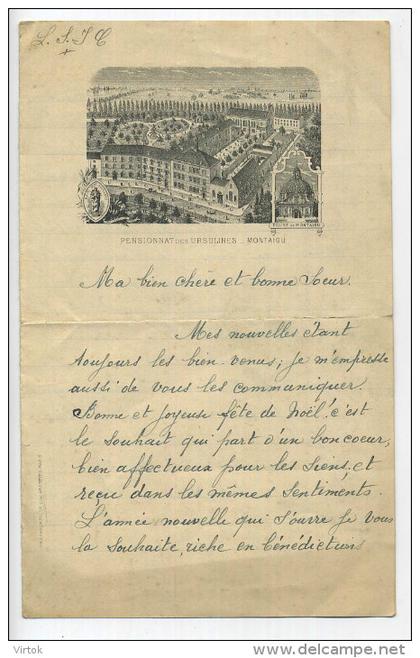 L. S. J. C
+
EGLISE DE MONTAIGU
PENSIONNAT DES URSULINES _ MONTAIGU
Ma bien chère et bonne Soeur.
Mes nouvelles étant
toujours les bien-venus; je m'empresse
aussi de vous les communiquer.
Bonne et joyeuse fête de Noël! c'est
le souhait qui part d'un bon coeur,
bien affectueux pour les siens, et
reçu dans les mêmes sentiments.
L'année nouvelle qui s'ouvre je vous
la souhaite, riche en bénédictions
Virtok
delcampe.net